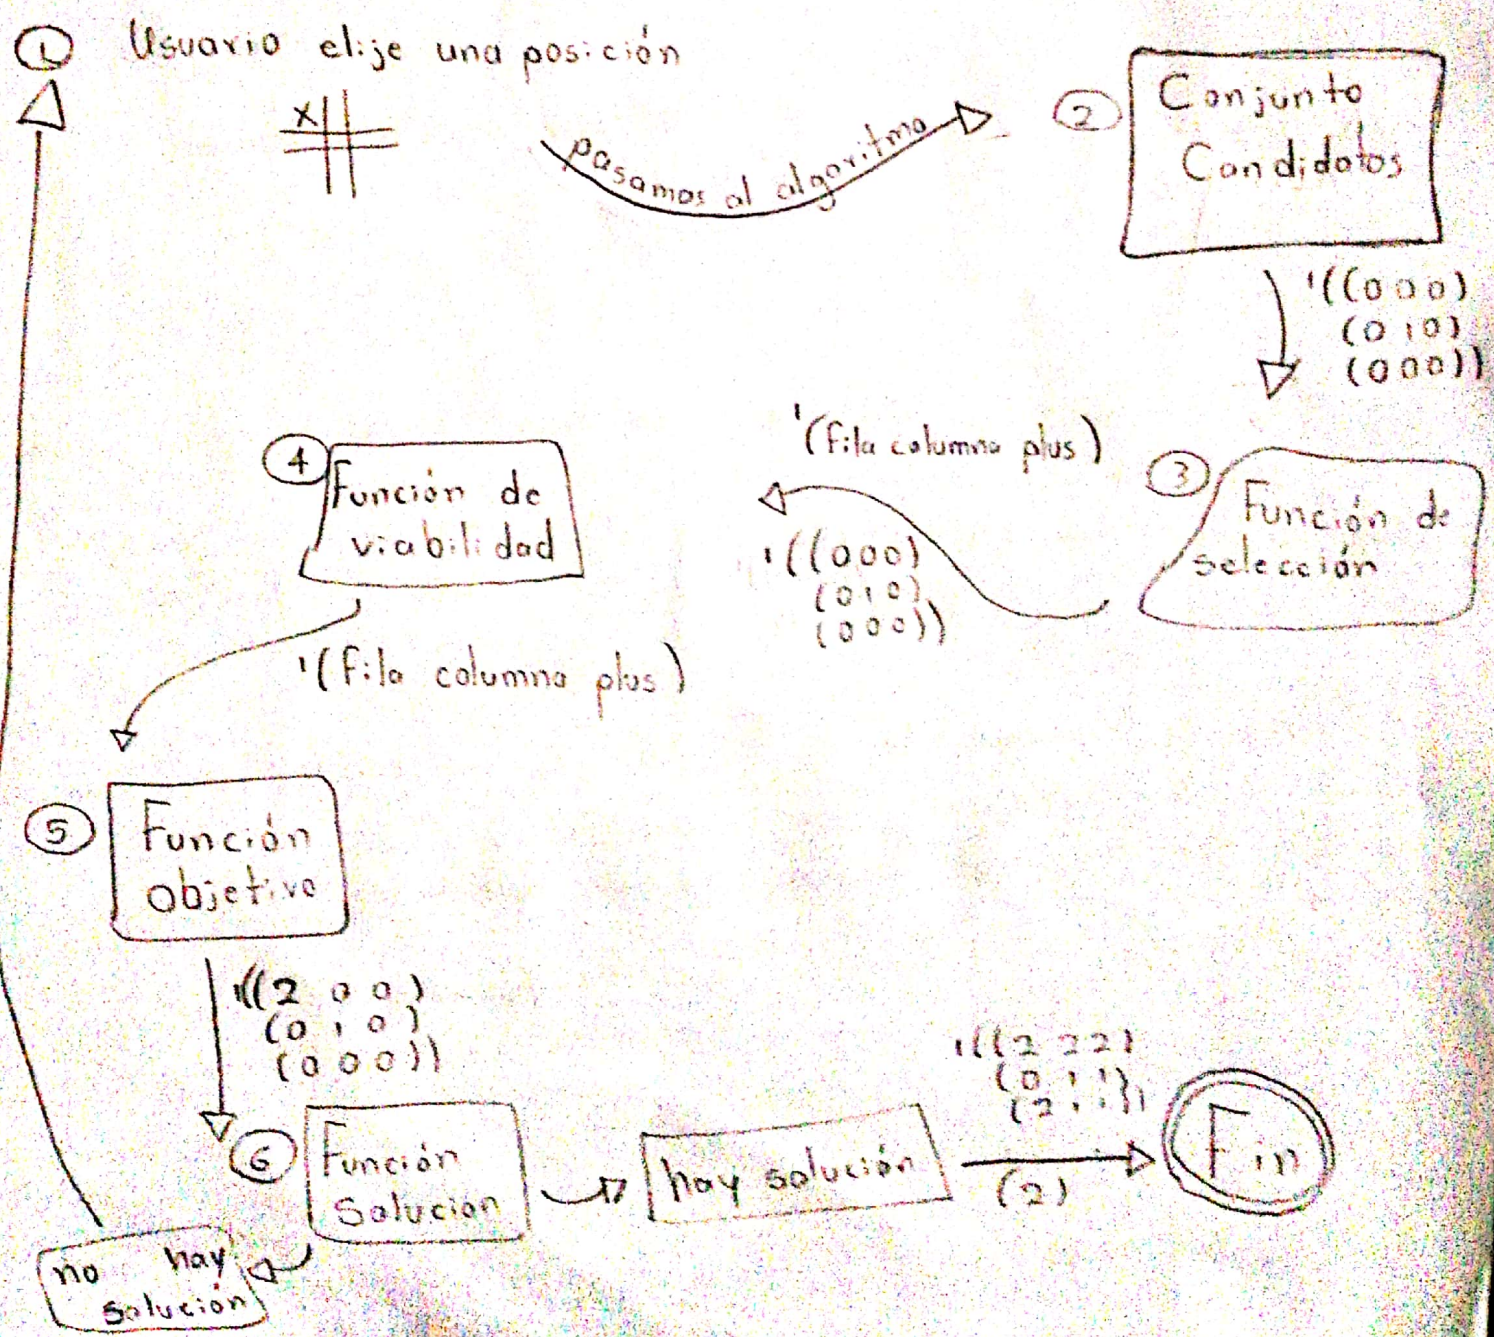 1 Usuario elije una posición
X
pasamos al algoritmo
2 Conjunto
Candidatos
'((0 0 0)
(0 1 0)
(0 0 0))
3 Función de
selección
'(fila columna plus)
'((0 0 0)
(0 1 0)
(0 0 0))
4 Función de
viabilidad
'(fila columna plus)
5 Función
objetivo
'((2 0 0)
(0 1 0)
(0 0 0))
6 Función
Solucion
hay solución
'((2 2 2)
(0 1 1)
(2 1 1))
(2)
Fin
no hay
solución